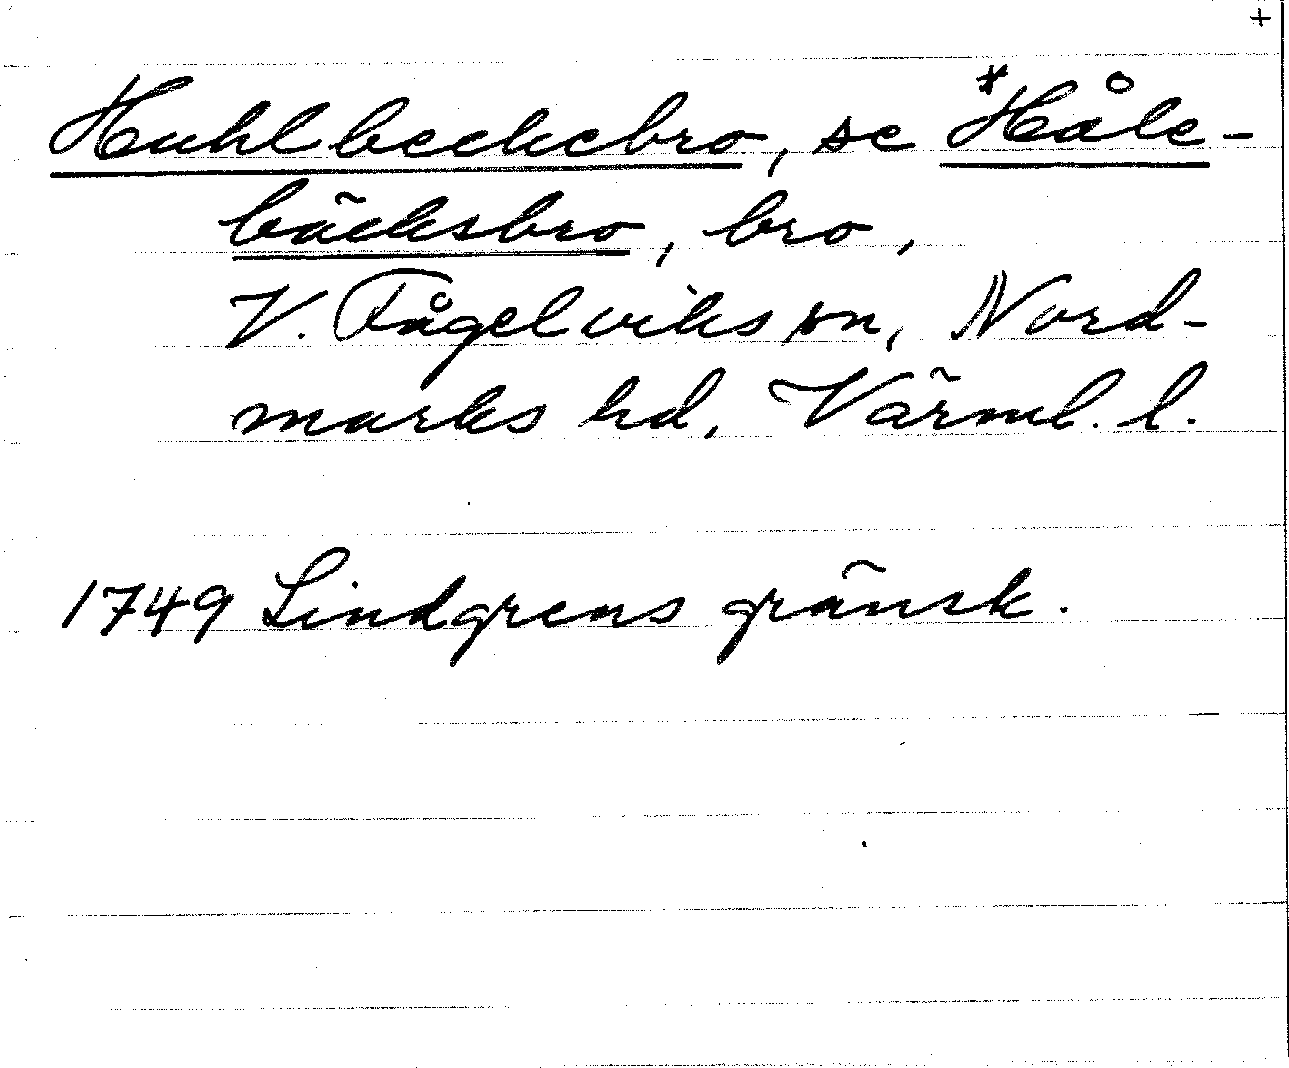 +
Huhlbeckebro, se *Håle-
bäcksbro, bro,
V. Fågelviks sn, Nord-
marks hd, Värml. l.
1749 Lindgrens gränsk.